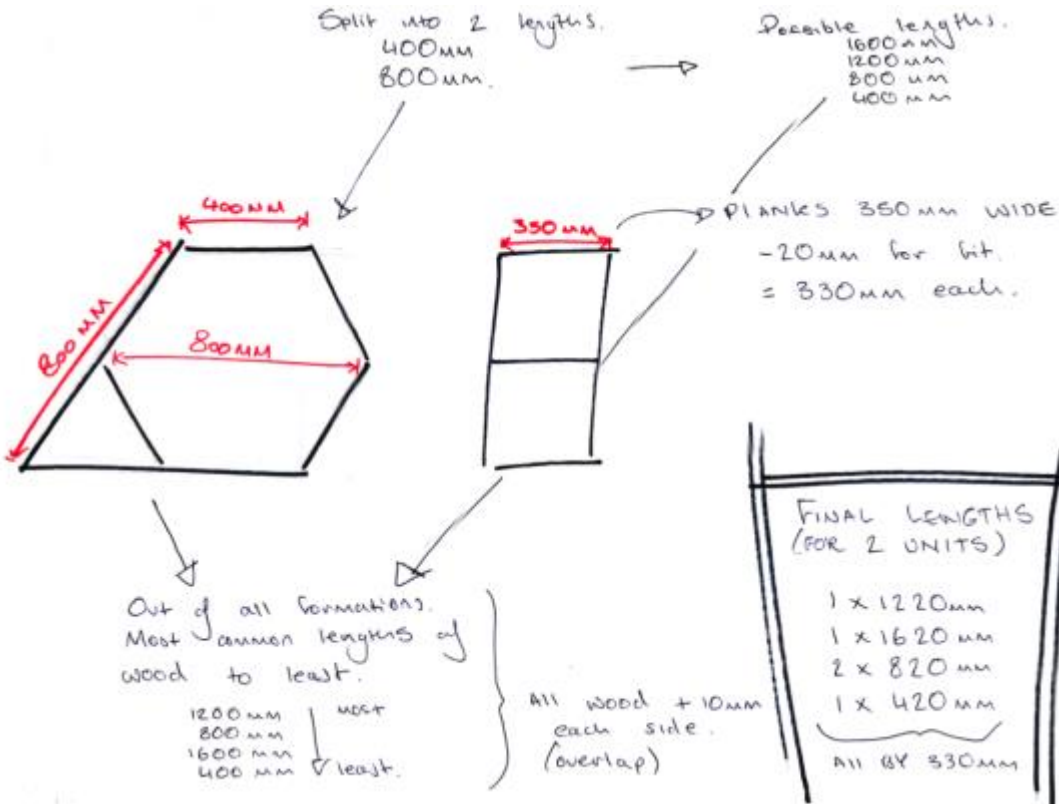 Split into 2 lengths.
400mm
800mm.
Possible lengths.
1600mm
1200mm
800mm
400mm
400MM
800MM
800MM
350mm
PLANKS 350mm WIDE
-20mm for bit.
= 330mm each.
Out of all formations.
Most common lengths of
wood to least.
1200mm most
800mm
1600mm
400mm least.
All wood + 10mm
each side.
(overlap)
FINAL LENGTHS
(FOR 2 UNITS)
1 x 1220mm
1 x 1620mm
2 x 820mm
1 x 420mm
All BY 330mm